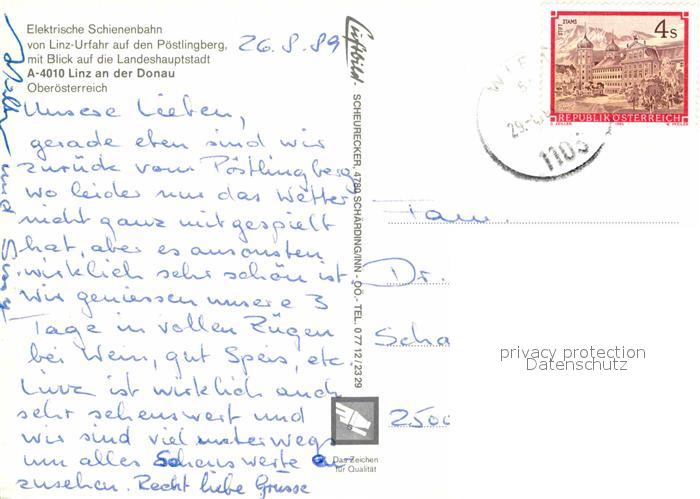 Elektrische Schienenbahn
von Linz-Urfahr auf den Pöstlingberg,
mit Blick auf die Landeshauptstadt
A-4010 Linz an der Donau
Oberösterreich
26.8.89
Unsere Lieben,
gerade eben sind wir
zurück vom Pöstlingberg
wo leider nur das Wetter
nicht ganz mitgespielt
hat, aber es ansonsten
wirklich sehr schön ist.
Wir geniessen unsere 3
Tage in vollen Zügen
bei Wein, gut Speis, etc.
Linz ist wirklich auch
sehr sehenswert und
wir sind viel unterwegs
um alles Sehenswerte an-
zusehen. Recht liebe Grüsse
und
Luftbild
SCHEURECKER, 4780 SCHÄRDING/INN - OÖ. - TEL. 0 77 12 / 23 29
Das Zeichen
für Qualität
STIFT STAMS
4 S
REPUBLIK ÖSTERREICH
1105
Fam.
Dr.
Scha
2500
privacy protection
Datenschutz